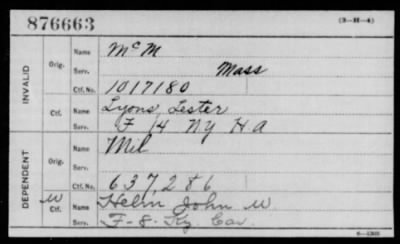 876663 (3-H-4)
INVALID
Orig.
Name McM
Serv. Mass
Ctf. No. 1017180
Ctf.
Name Lyons, Lester
Serv. F 14 NY H A
DEPENDENT
Orig.
Name Mil
Serv.
Ctf. No. 637,286
W
Ctf.
Name Helm John W
Serv. F-8-Ky. Cav.